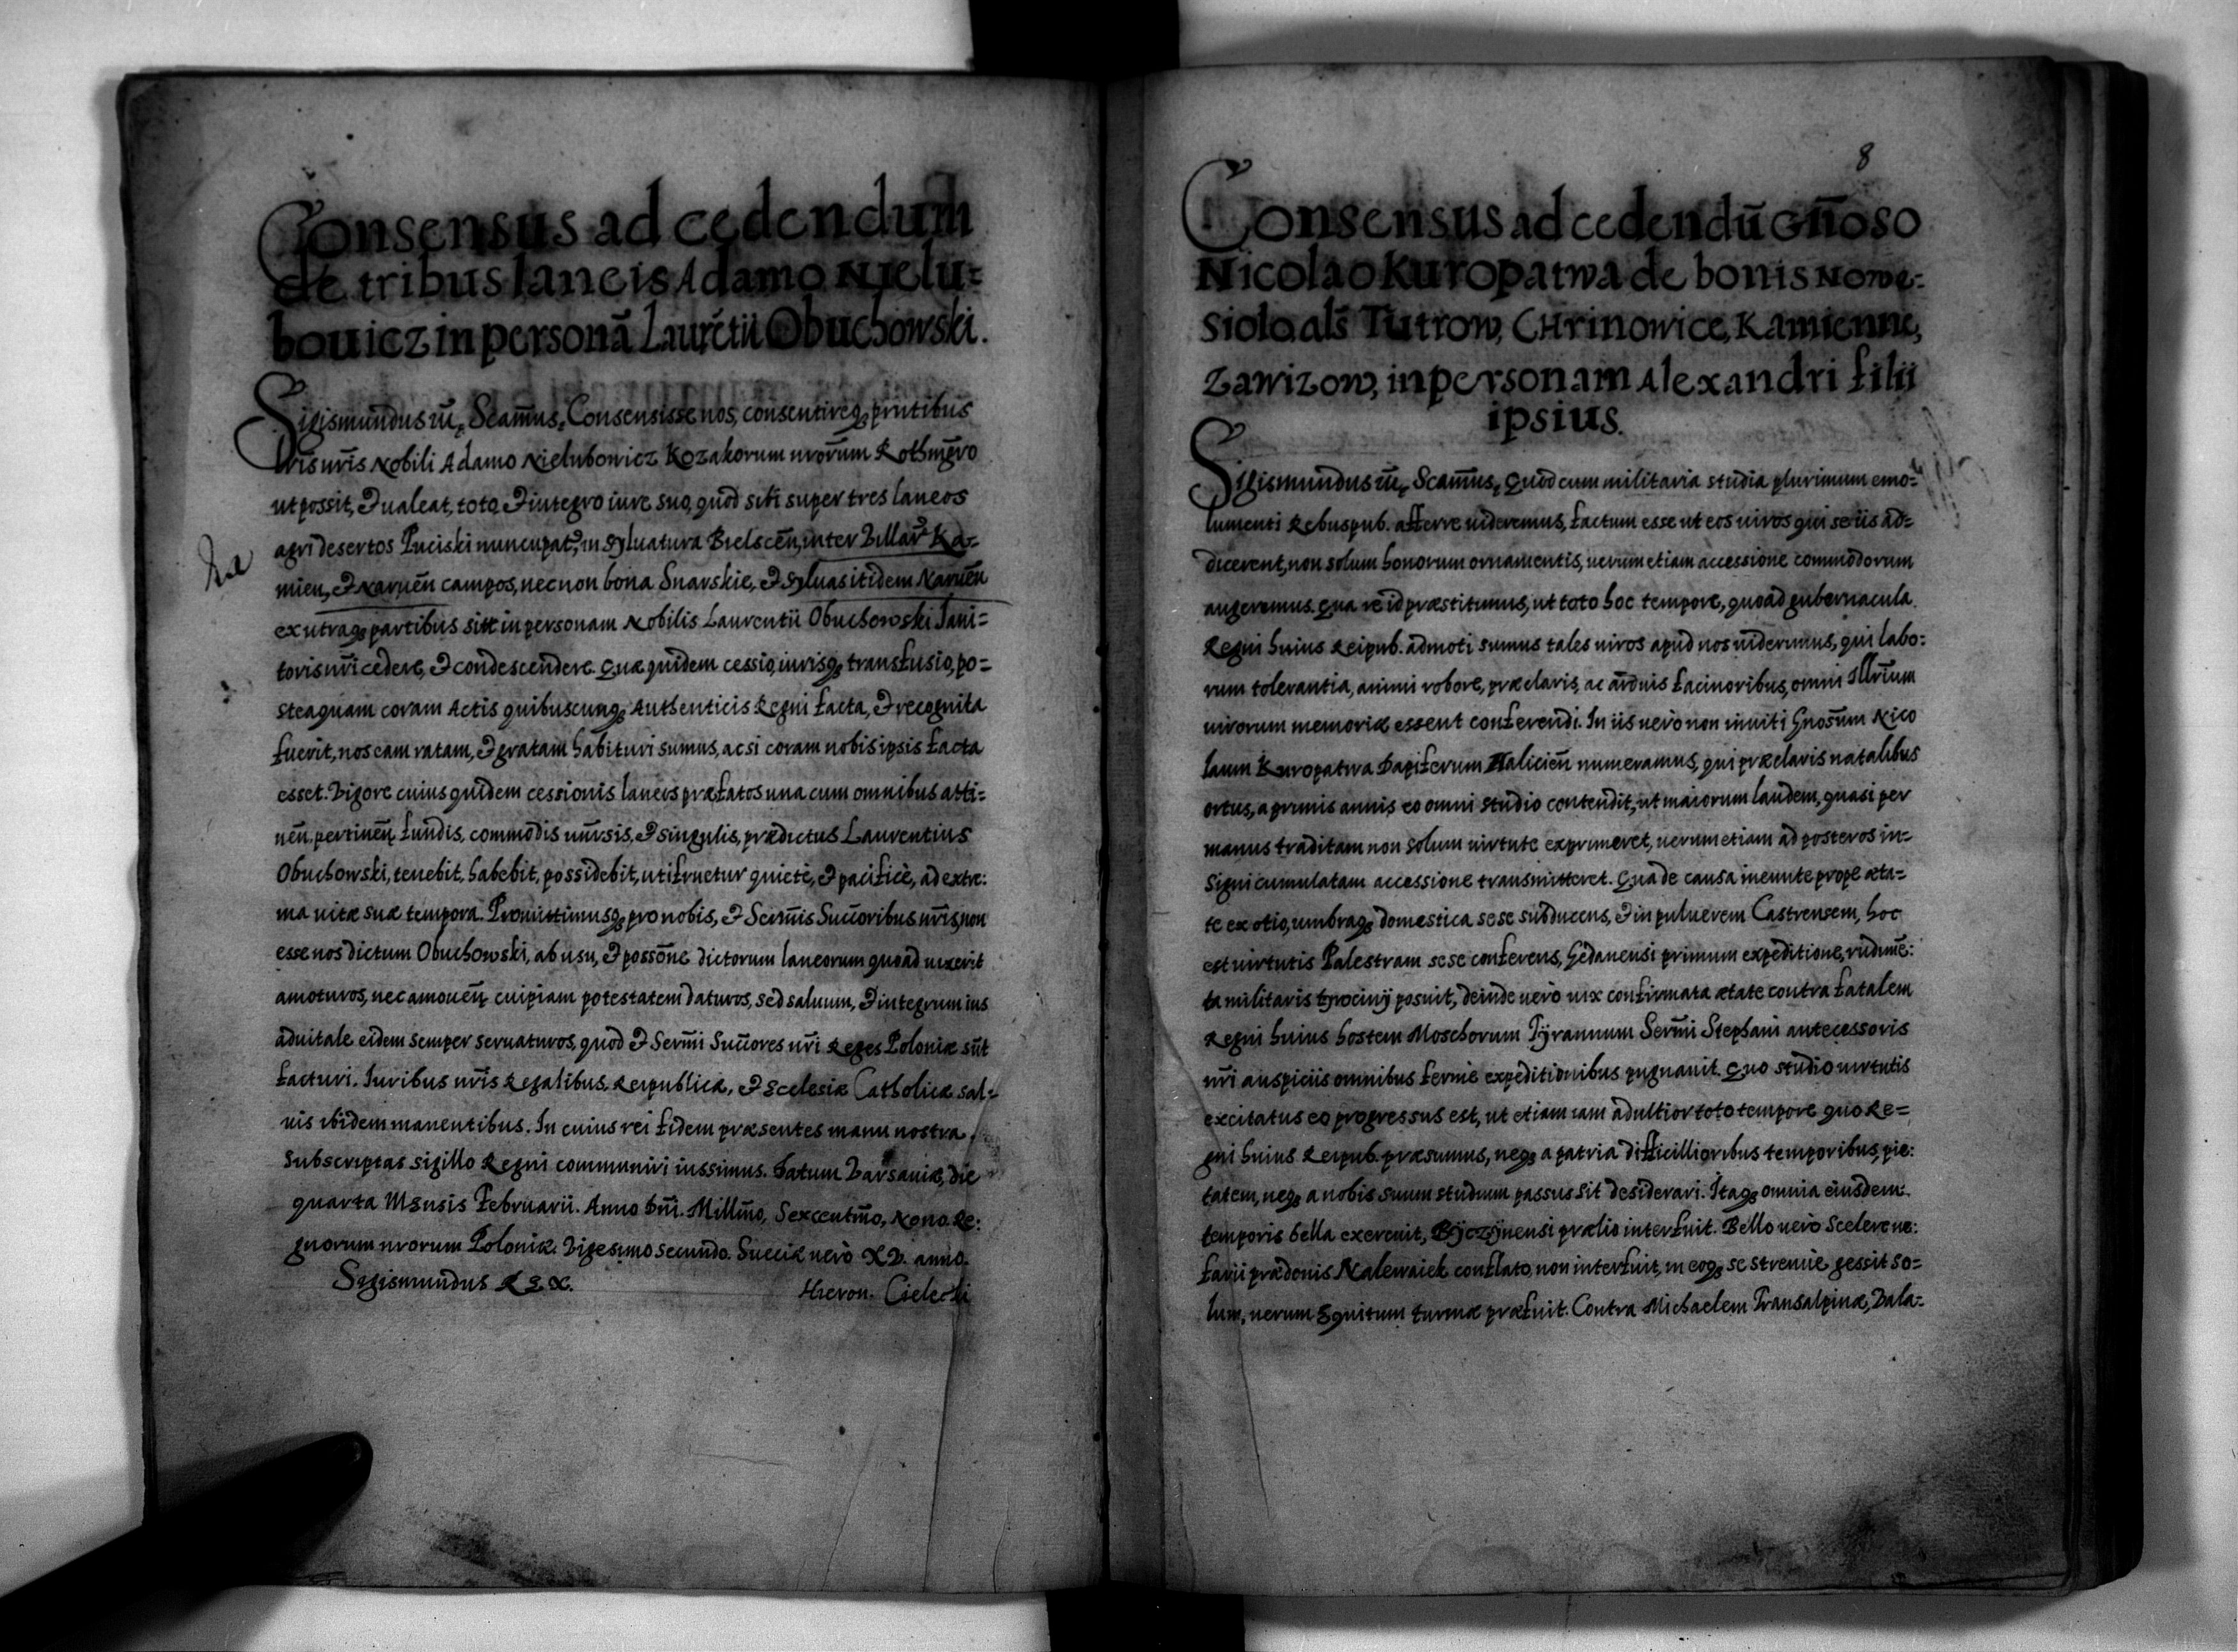 Consensus ad cedendum
de tribus laneis Adamo Nielu=
bouicz in personā Laurētii Obuchowski.
Sigismundus iii, Scam̄us, Consensisse nos, consentireq; pn̄tibus
lris nr̄is Nobili Adamo Nielubowicz Kozakorum nrorum Rothmg̃ro
ut possit, & ualeat, toto, & integro iure suo, quod sibi super tres laneos
agri desertos Puciski nuncupat, in syluatura Bielscen̄, inter Villar̄ Ka-
mien, & Naruen̄ campos, nec non bona Snarskie, & syluas itidem Naruen̄
ex utraq; partibus sitt in personam Nobilis Laurentii Obuchowski Iani=
toris nr̄i cedere, & condescendere. Quæ quidem cessio, iurisq; transfusio, po=
steaquam coram Actis quibuscunq; Authenticis Regni facta, & recognita
fuerit, nos eam ratam, & gratam habituri sumus, ac si coram nobis ipsis facta
esset. Vigore cuius quidem cessionis laneos præfatos una cum omnibus atti=
nen̄, pertinen̄, fundis, commodis un̄rsis, & singulis, prædictus Laurentius
Obuchowski, tenebit, habebit, possidebit, utifruetur quietè, & pacificè, ad extre:
ma uitæ suæ tempora. Promittimusq; pro nobis, & Serm̄is Succ̄oribus nr̄is, non
esse nos dictum Obuchowski, ab usu, & possōne dictorum laneorum quoad uixerit
amoturos, nec amouen̄ cuipiam potestatem daturos, sed saluum, & integrum ius
aduitale eidem semper seruaturos, quod & Serm̄i Succ̄ores nr̄i Reges Poloniæ sūt
facturi. Iuribus nr̄is Regalibus, Reipublicæ, & Ecclesiæ Catholicæ sal-
uis ibidem manentibus. In cuius rei fidem præsentes manu nostra
subscriptas sigillo Regni communiri iussimus. Datum Varsauiæ, die
quarta Mensis Februarii. Anno Dn̄i. Millm̄o, Sexcentm̄o, Nono. Re:
gnorum nrorum Poloniæ. Vigesimo secundo. Sueciæ uerò XV. anno.
Sigismundus REX. Hieron. Cielecki
8
Consensus ad cedendū Gn̄oso
Nicolao Kuropatwa de bonis Nowe-
siolo als̄ Tutrow, Chrinowice, Kamienne,
Zawizow, in personam Alexandri filii
ipsius.
Sigismundus iii, Scam̄us, Quod cum militaria studia plurimum emo=
lumenti Rebuspub. afferre uideremus, factum esse ut eos uiros qui se iis ad=
dicerent, non solum honorum ornamentis, uerum etiam accessione commodorum
augeremus. Qua re id præstitimus, ut toto hoc tempore, quoad gubernacula
Regni huius Reipub. admoti sumus tales uiros apud nos uiderimus, qui labo:
rum tolerantia, animi robore, præclaris, ac arduis facinoribus, omni Illr̄ium
uirorum memoriæ essent conferendi. In iis uero non inuiti Gnosum Nico
laum Kuropatwa Dapiferum Halicien̄ numeramus, qui præclaris natalibus
ortus, a primis annis eo omni studio contendit, ut maiorum laudem, quasi per
manus traditam non solum uirtute exprimeret, uerum etiam ad posteros in-
signi cumulatam accessione transmitteret. Qua de causa ineunte prope æta-
te ex otio, umbraq; domestica sese subducens, & in puluerem Castrensem, hoc
est uirtutis Palestram sese conferens, Gedanensi primum expeditione, rudimē:
ta militaris tyrocinij posuit, deinde uero uix confirmata ætate contra fatalem
Regni huius hostem Moschorum Tÿrannum Serm̄i Stephani antecessoris
nr̄i auspiciis omnibus fermè expeditionibus pugnauit. Quo studio uirtutis
excitatus eo progressus est, ut etiam iam adultior toto tempore quo Re=
gni huius Reipub. præsumus, neq; a patria difficillioribus temporibus, pie:
tatem, neq; a nobis suum studium passus sit desiderari. Itaq; omnia eiusdem
temporis bella exercuit, Byczÿnensi prælio interfuit. Bello uero scelere ne:
farii prædonis Nalewaiek conflato, non interfuit, in eoq; se strenue gessit so=
lum, uerum Equitum turmæ præfuit. Contra Michaelem Transalpinæ, Vala-